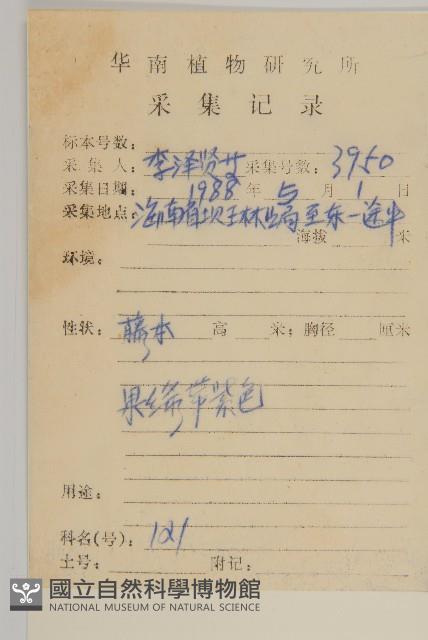 华南植物研究所
采集记录
标本号数:
采集人: 李泽贤等 采集号数: 3950
采集日期: 1988 年 5 月 1 日
采集地点: 海南省坝王林业局至东一途中
海拔 米
环境:
性状: 藤本 高 米; 胸径 厘米
果 紫色
用途:
科名(号): 121
土号: 附记:
國立自然科學博物館
NATIONAL MUSEUM OF NATURAL SCIENCE